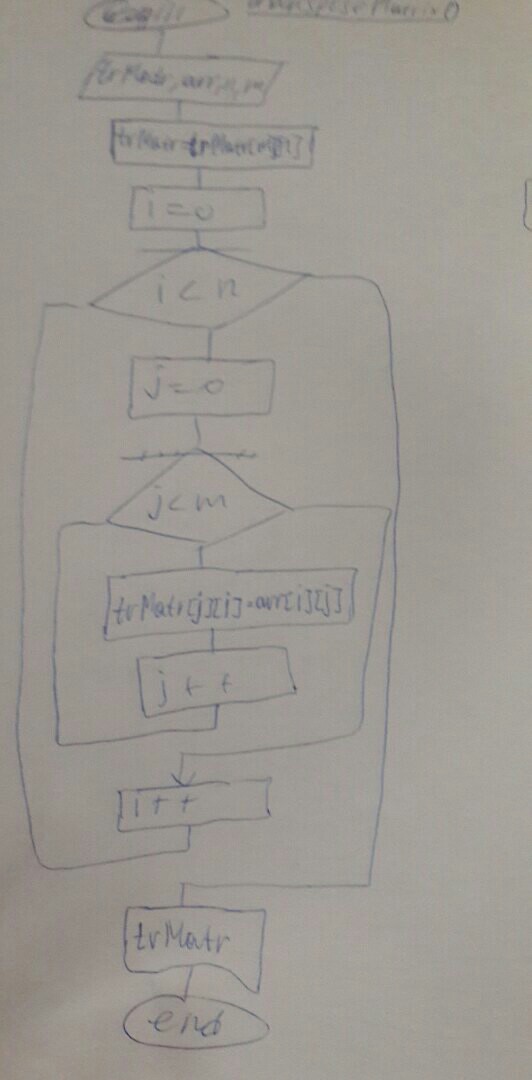 Begin
transposeMatrix()
trMatr, arr, n, m
trMatr=trMatr[m][n]
i=0
i<n
j=0
j<m
trMatr[j][i]=arr[i][j]
j++
i++
trMatr
end